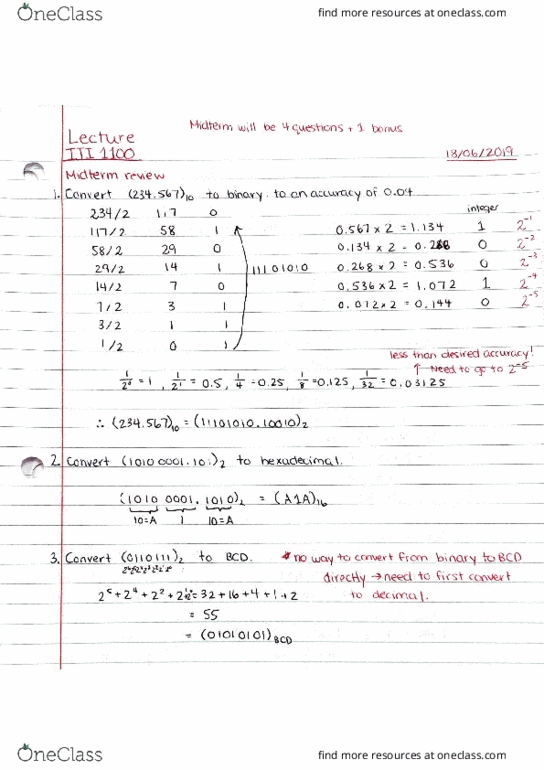 OneClass find more resources at oneclass.com
Midterm will be 4 questions + 1 bonus
Lecture
ITI 1100 18/06/2019
Midterm review
1. Convert (234.567)10 to binary to an accuracy of 0.04
integer
234/2 117 0
117/2 58 1 0.567 x 2 = 1.134 1 2^-1
58/2 29 0 0.134 x 2 = 0.268 0 2^-2
29/2 14 1 11101010 0.268 x 2 = 0.536 0 2^-3
14/2 7 0 0.536 x 2 = 1.072 1 2^-4
7/2 3 1 0.072 x 2 = 0.144 0 2^-5
3/2 1 1
1/2 0 1
less than desired accuracy!
↑ Need to go to 2^-5
1/2^0 = 1, 1/2^1 = 0.5, 1/4 = 0.25, 1/8 = 0.125, 1/32 = 0.03125
∴ (234.567)10 = (11101010.10010)2
2. Convert (1010 0001.101)2 to hexadecimal.
(1010 0001.1010)2 = (A1A)16
10=A 1 10=A
3. Convert (0110111)2 to BCD. * no way to convert from binary to BCD
directly → need to first convert
2^5 + 2^4 + 2^2 + 2^1 = 32 + 16 + 4 + 1 + 2 to decimal.
= 55
= (01010101)BCD
OneClass find more resources at oneclass.com